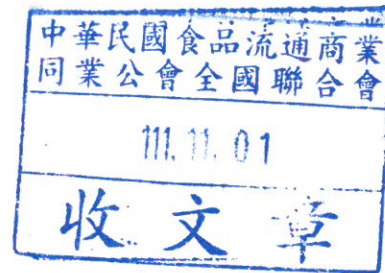 中華民國食品流通商業
同業公會全國聯合會
111.11.01
收文章